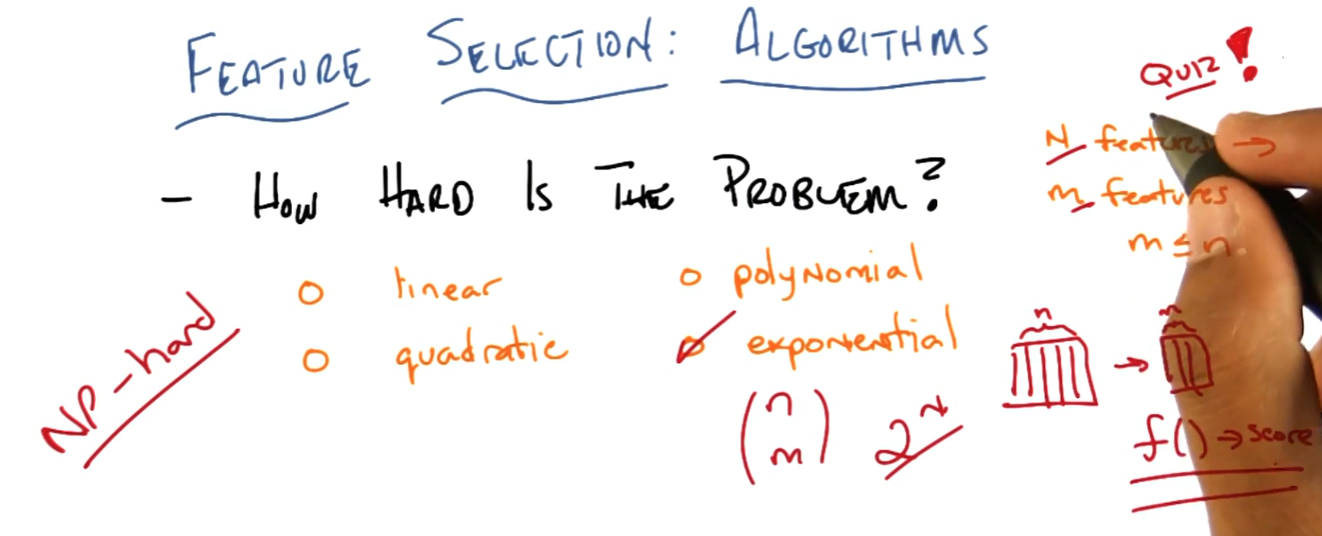 FEATURE SELECTION: ALGORITHMS
QUIZ!
- HOW HARD IS THE PROBLEM?
N features →
m features
m ≤ n
○ linear
○ polynomial
○ quadratic
○ exponential
NP-hard
(n m) 2^N
n → m
f() → score